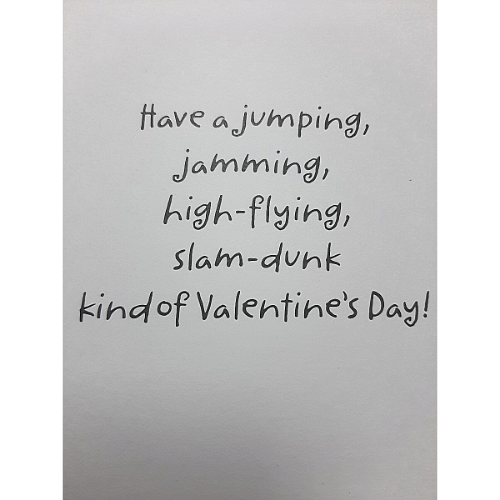 Have a jumping,
jamming,
high-flying,
slam-dunk
kind of Valentine's Day!